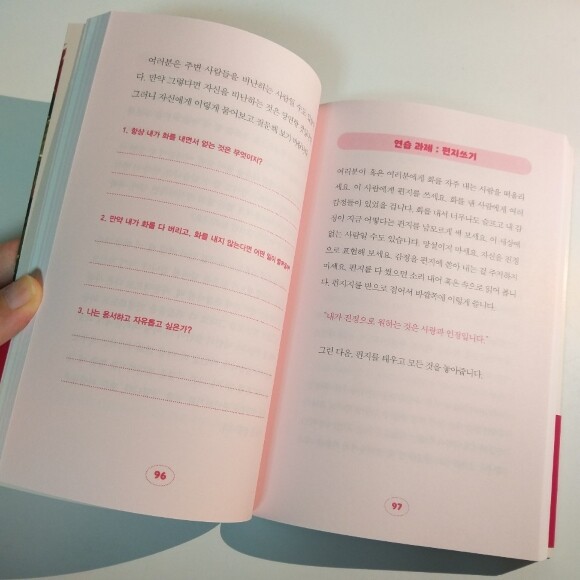 여러분은 주변 사람들을 비난하는 사람일 수도
다. 만약 그렇다면 자신을 비난하는 것은 당연한
그러니 자신에게 이렇게 물어보고 질문해 보기 바랍니다.
1. 항상 내가 화를 내면서 얻는 것은 무엇이지?
2. 만약 내가 화를 다 버리고, 화를 내지 않는다면 어떤 일이
3. 나는 용서하고 자유롭고 싶은가?
96
연습 과제 : 편지쓰기
여러분이 혹은 여러분에게 화를 자주 내는 사람을 떠올리
세요. 이 사람에게 편지를 쓰세요. 화를 낼 사람에게 여러
감정들이 있었을 겁니다. 화를 내서 너무나도 슬프고 내 감
정이 지금 어떻다는 편지를 남모르게 써 보세요. 이 세상에
없는 사람일 수도 있습니다. 망설이지 마세요. 자신을 진정
으로 표현해 보세요. 감정을 편지에 쏟아 내는 걸 주저하지
마세요. 편지를 다 썼으면 소리 내어 혹은 속으로 읽어 봅니
다. 편지지를 반으로 접어서 바깥쪽에 이렇게 씁니다.
“내가 진정으로 원하는 것은 사랑과 인정입니다.”
그런 다음, 편지를 태우고 모든 것을 놓아줍니다.
97